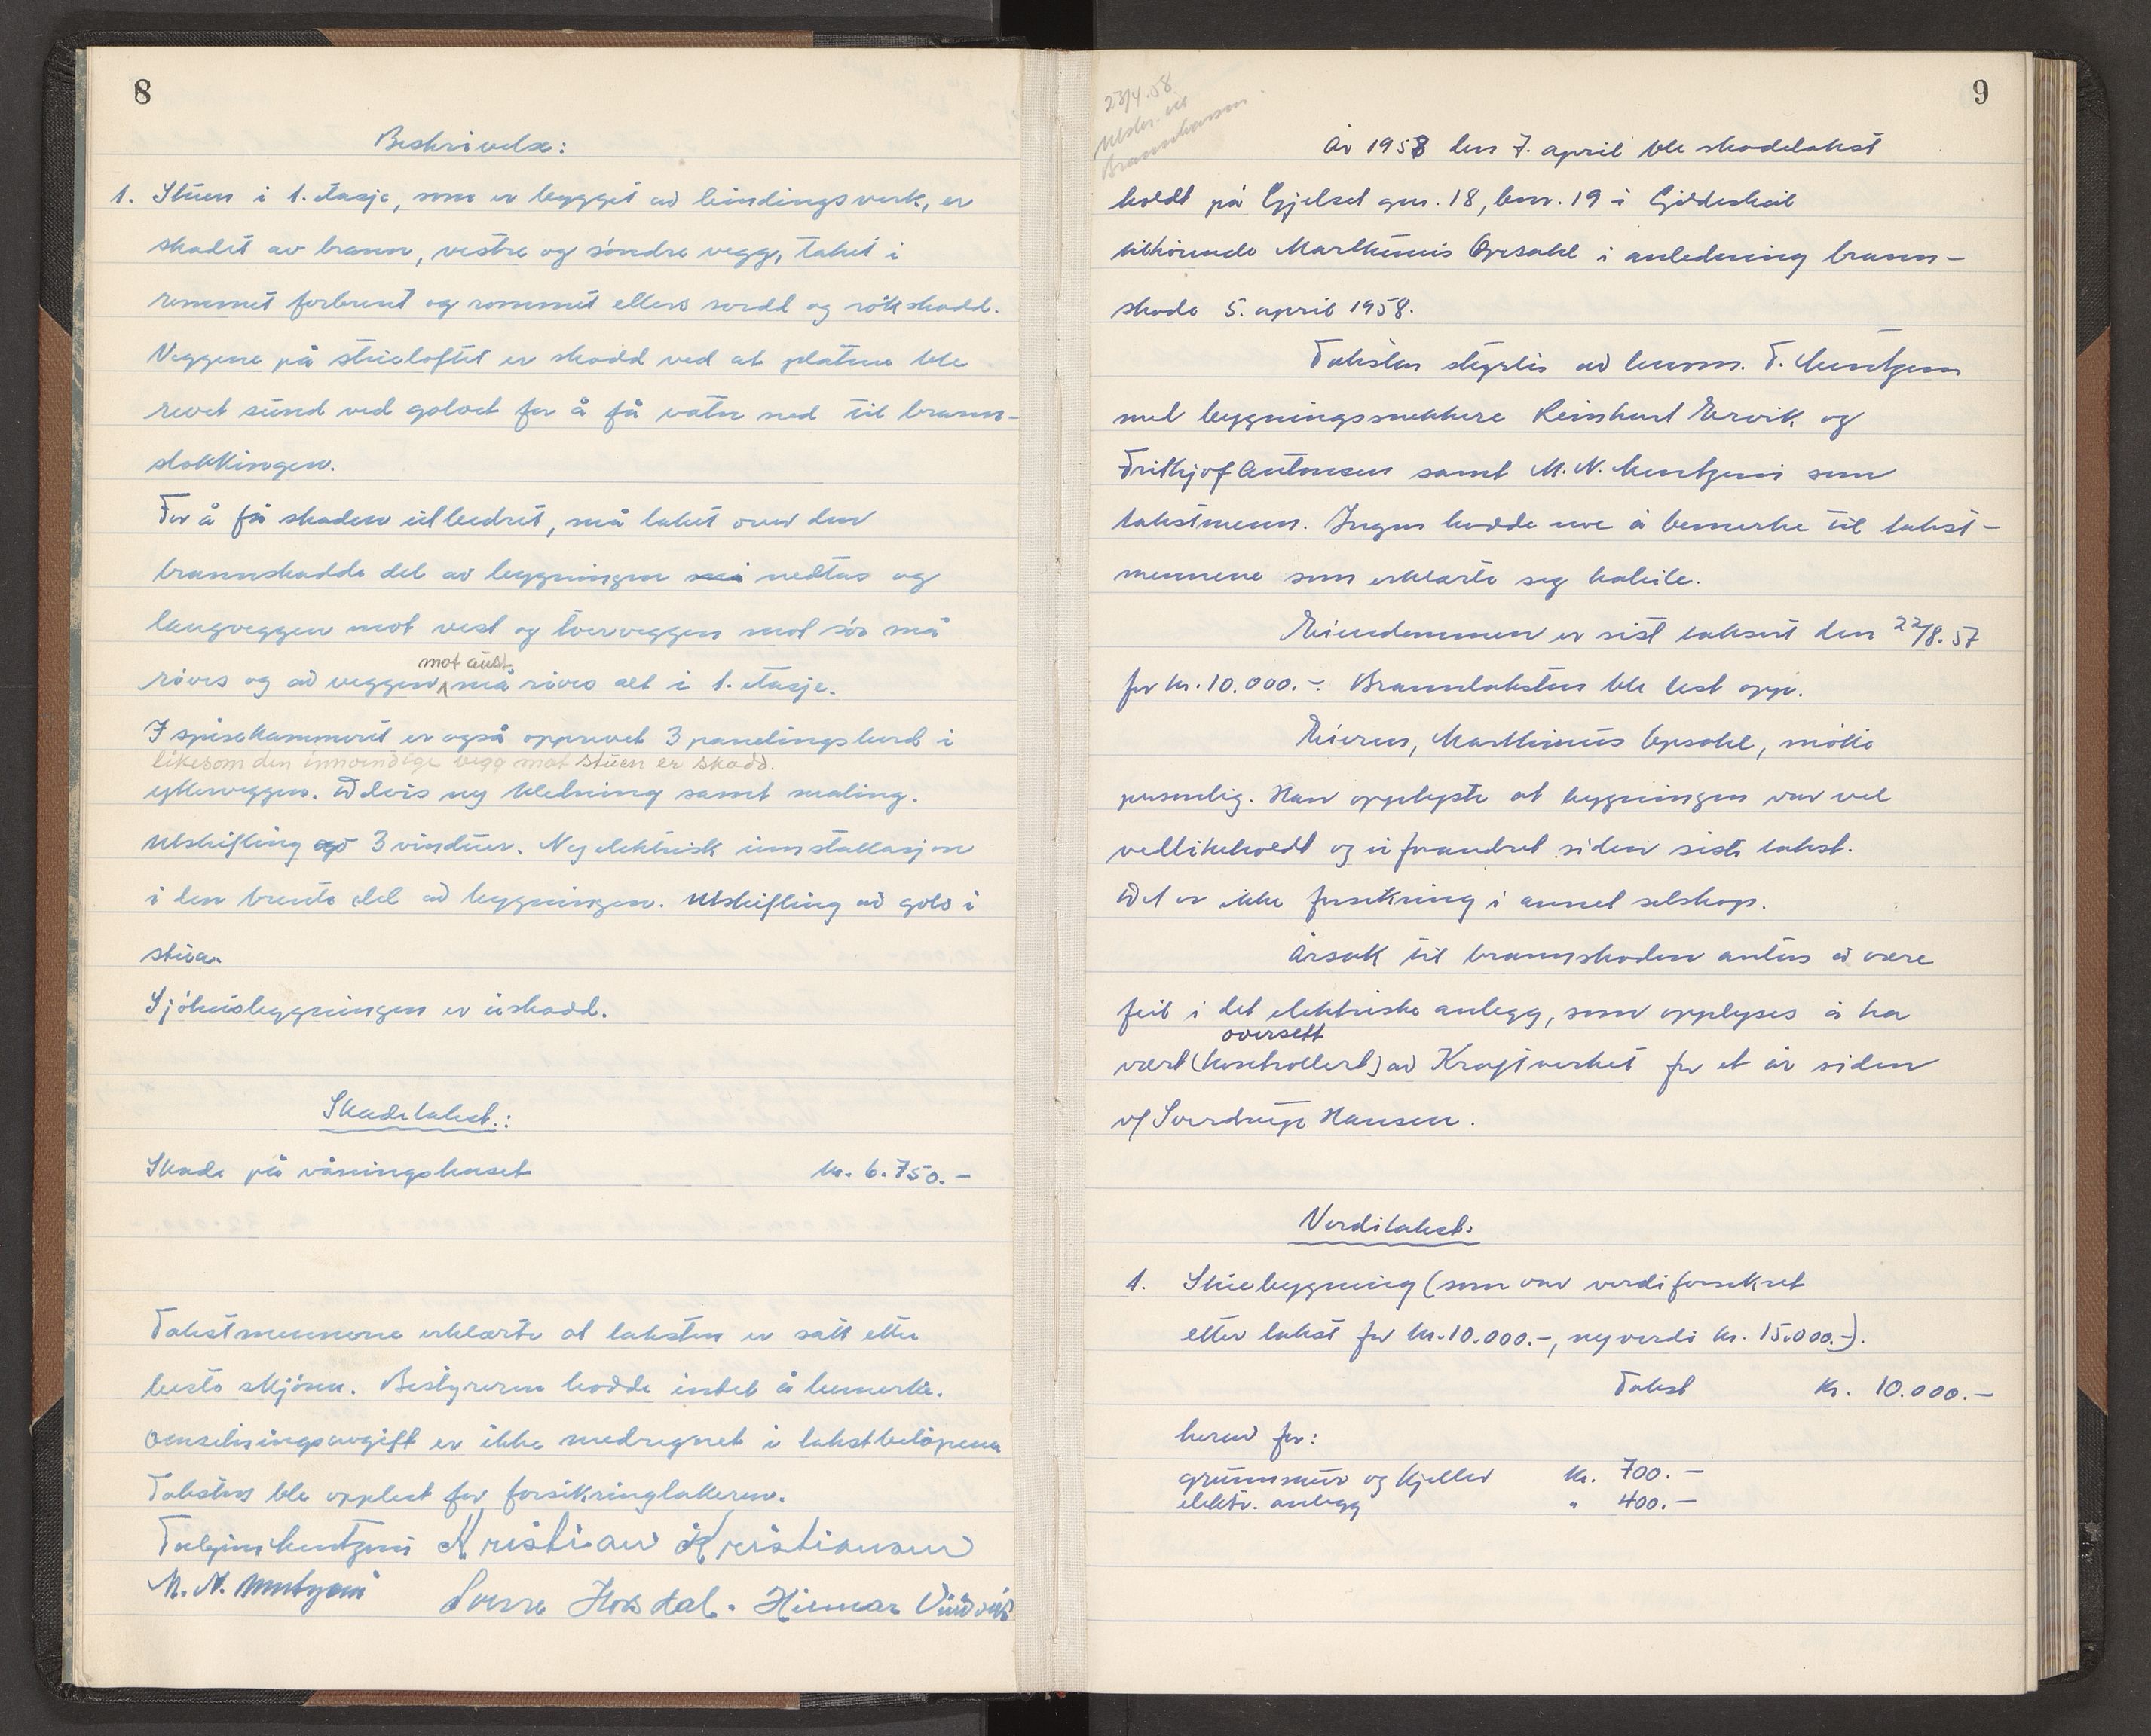 8
Beskrivelse:
1. Stuen i 1. etasje, som er bygget av bindingsverk, er
skadet av brann, vestre og søndre vegg, taket i
rommet forbrent og rommet ellers svidd og rökskadd.
Veggene på stueloftet er skadd ved at platene ble
revet sund ved golvet for å få vatn ned til brann-
slokkingen.
For å få skaden utbedret, må taket over den
brannskadde del av bygningen må nedtas og
langveggen mot vest og tverveggen mot sør må
rives og av veggen mot aust. må rives alt i 1. etasje.
I spisekammerit er også opprevet 3 panelingsbord i
likesom den innvendige vegg mot stuen er skadd.
ytterveggen. Delvis ny kledning samt maling.
Utskifting av 3 vinduer. Ny elektrisk innstallasjon
i den brente del av bygningen. Utskifting av golv i
stua.
Sjöhusbygningen er uskadd.
Skadetakst.:
Skade på våningshuset kr. 6.750.-
Takstmennene erklærte at taksten er satt etter
beste skjønn. Bestyreren hadde intet å bemerke.
Omsetningsavgift er ikke medregnet i takstbelöpene
Taksten ble opplest for forsikringtakeren.
Torbjørn Mentzoni Kristian Kristiansen
M. N. Mentzoni Sverre Horsdal. Hilmar
9
23/4.58
Utskr. til
Brannkassen
År 1958 den 7. april ble skadetakst
holdt på Gjelset gnr. 18, bnr. 19 i Gildeskål
tilhörende Marthinus Opsahl i anledning brann-
skade 5. april 1958.
Taksten styrtes av lensm. T. Mentzoni
med bygningssnekkere Reinhart Ervik og
Frithjof Antonsen samt M. N. Mentzoni som
takstmenn. Ingen hadde noe å bemerke til takst-
mennene som erklærte seg habile.
Eiendommen er sist taksert den 22/8. 57
for kr. 10.000.-. Branntaksten ble lest opp.
Eieren, Marthinus Opsahl, møtte
personlig. Han opplyste at bygningen var vel
vedlikeholdt og uforandret siden siste takst.
Det er ikke forsikring i annet selskap.
Årsak til brannskaden antas å være
feil i det elektriske anlegg, som opplyses å ha
oversett
vært (kontrollert) av Kraftverket for et år siden
v/ Sverdrup Hansen.
Verditakst:
1. Stuebygning (som var verdiforsikret
etter takst for kr. 10.000.-, nyverdi kr. 15.000.-).
Takst kr. 10.000.-
herav for:
grunnmur og kjeller kr. 700.-
elektr. anlegg " 400.-